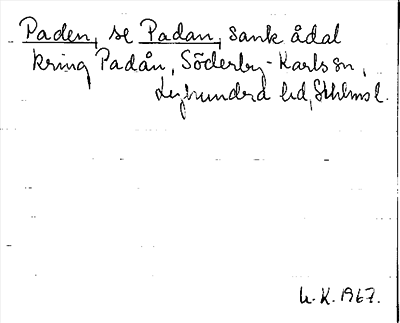 Paden, se Padan, sank ådal
kring Padån, Söderby-Karls sn,
Lyhundra hd, Sthlms l.
U.K. 1967.